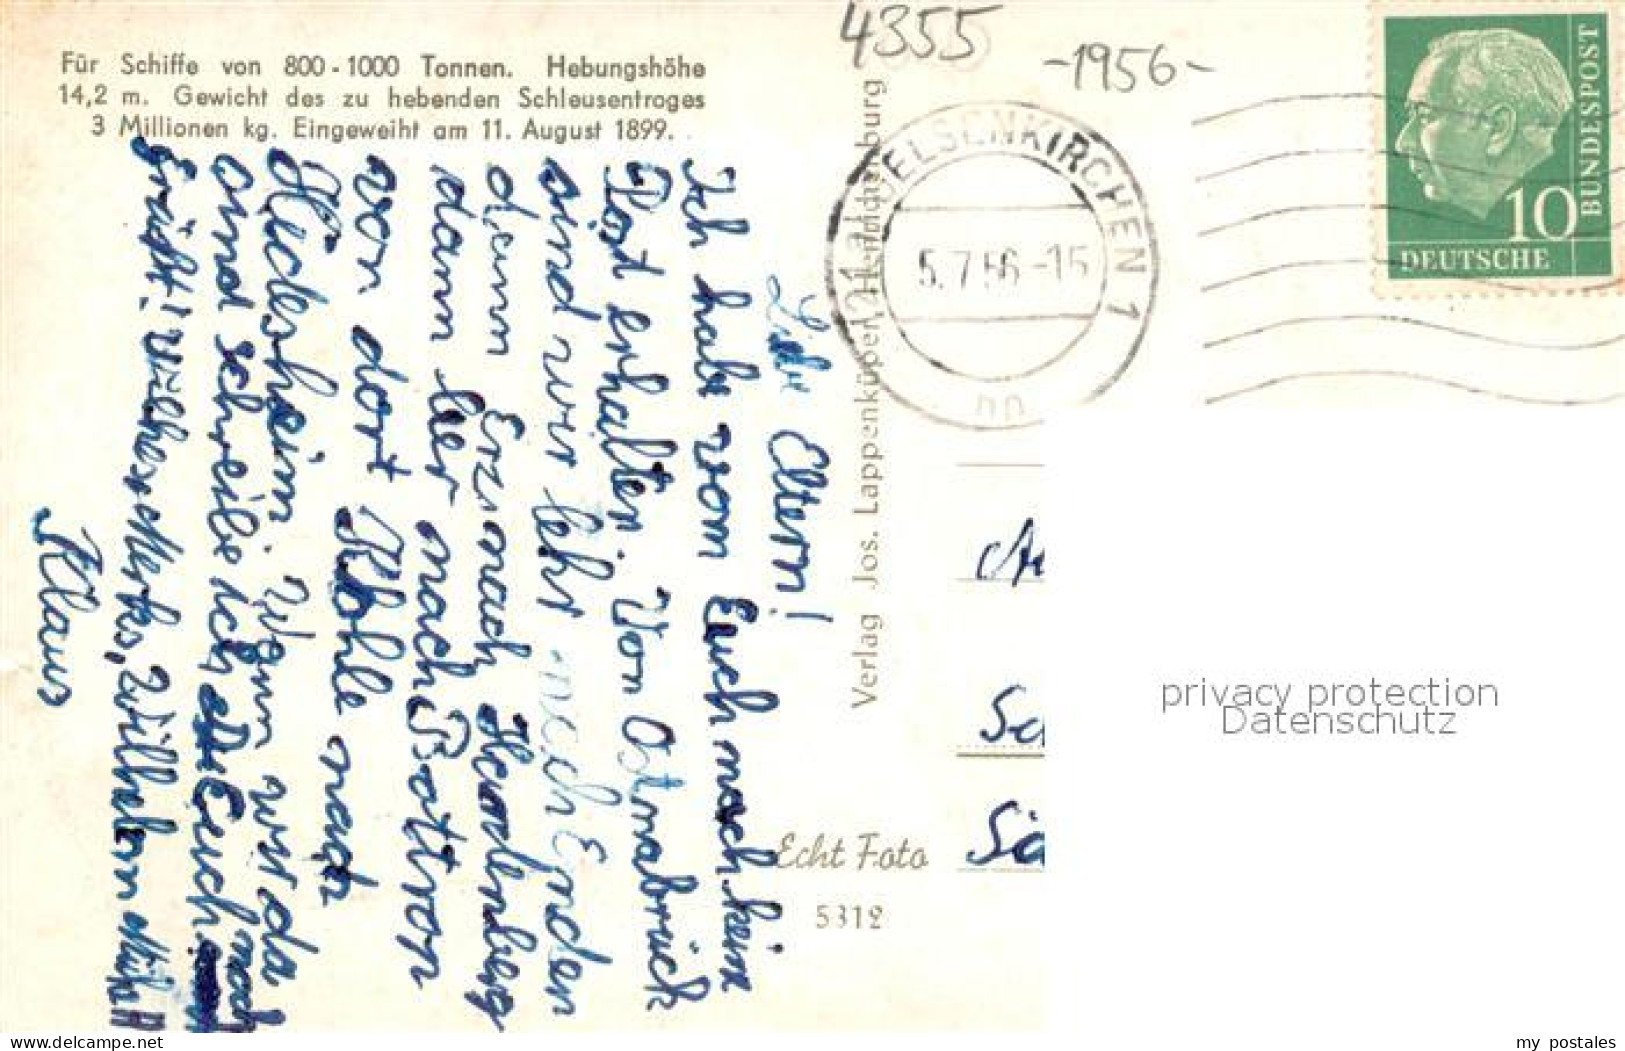 Für Schiffe von 800-1000 Tonnen. Hebungshöhe
14,2 m. Gewicht des zu hebenden Schleusentroges
3 Millionen kg. Eingeweiht am 11. August 1899.
4355
-1956-
GELSENKIRCHEN 1
5.7.56-15
10
BUNDESPOST
DEUTSCHE
Liebe Eltern!
Ich habe von Euch noch kein
Post erhalten. Von Osnabrück
sind wir lehr nach Emden
dann Erz nach Henrichenburg
dann leer nach Bottrop
von dort Kohle nach
Hildesheim. Wenn wir da
sind schreibe ich Euch noch
Grüßt
Klaus
Verlag Jos. Lappenküper, Henrichenburg
Echt Foto
5312
privacy protection
Datenschutz
www.my-postcard.com
my_postales